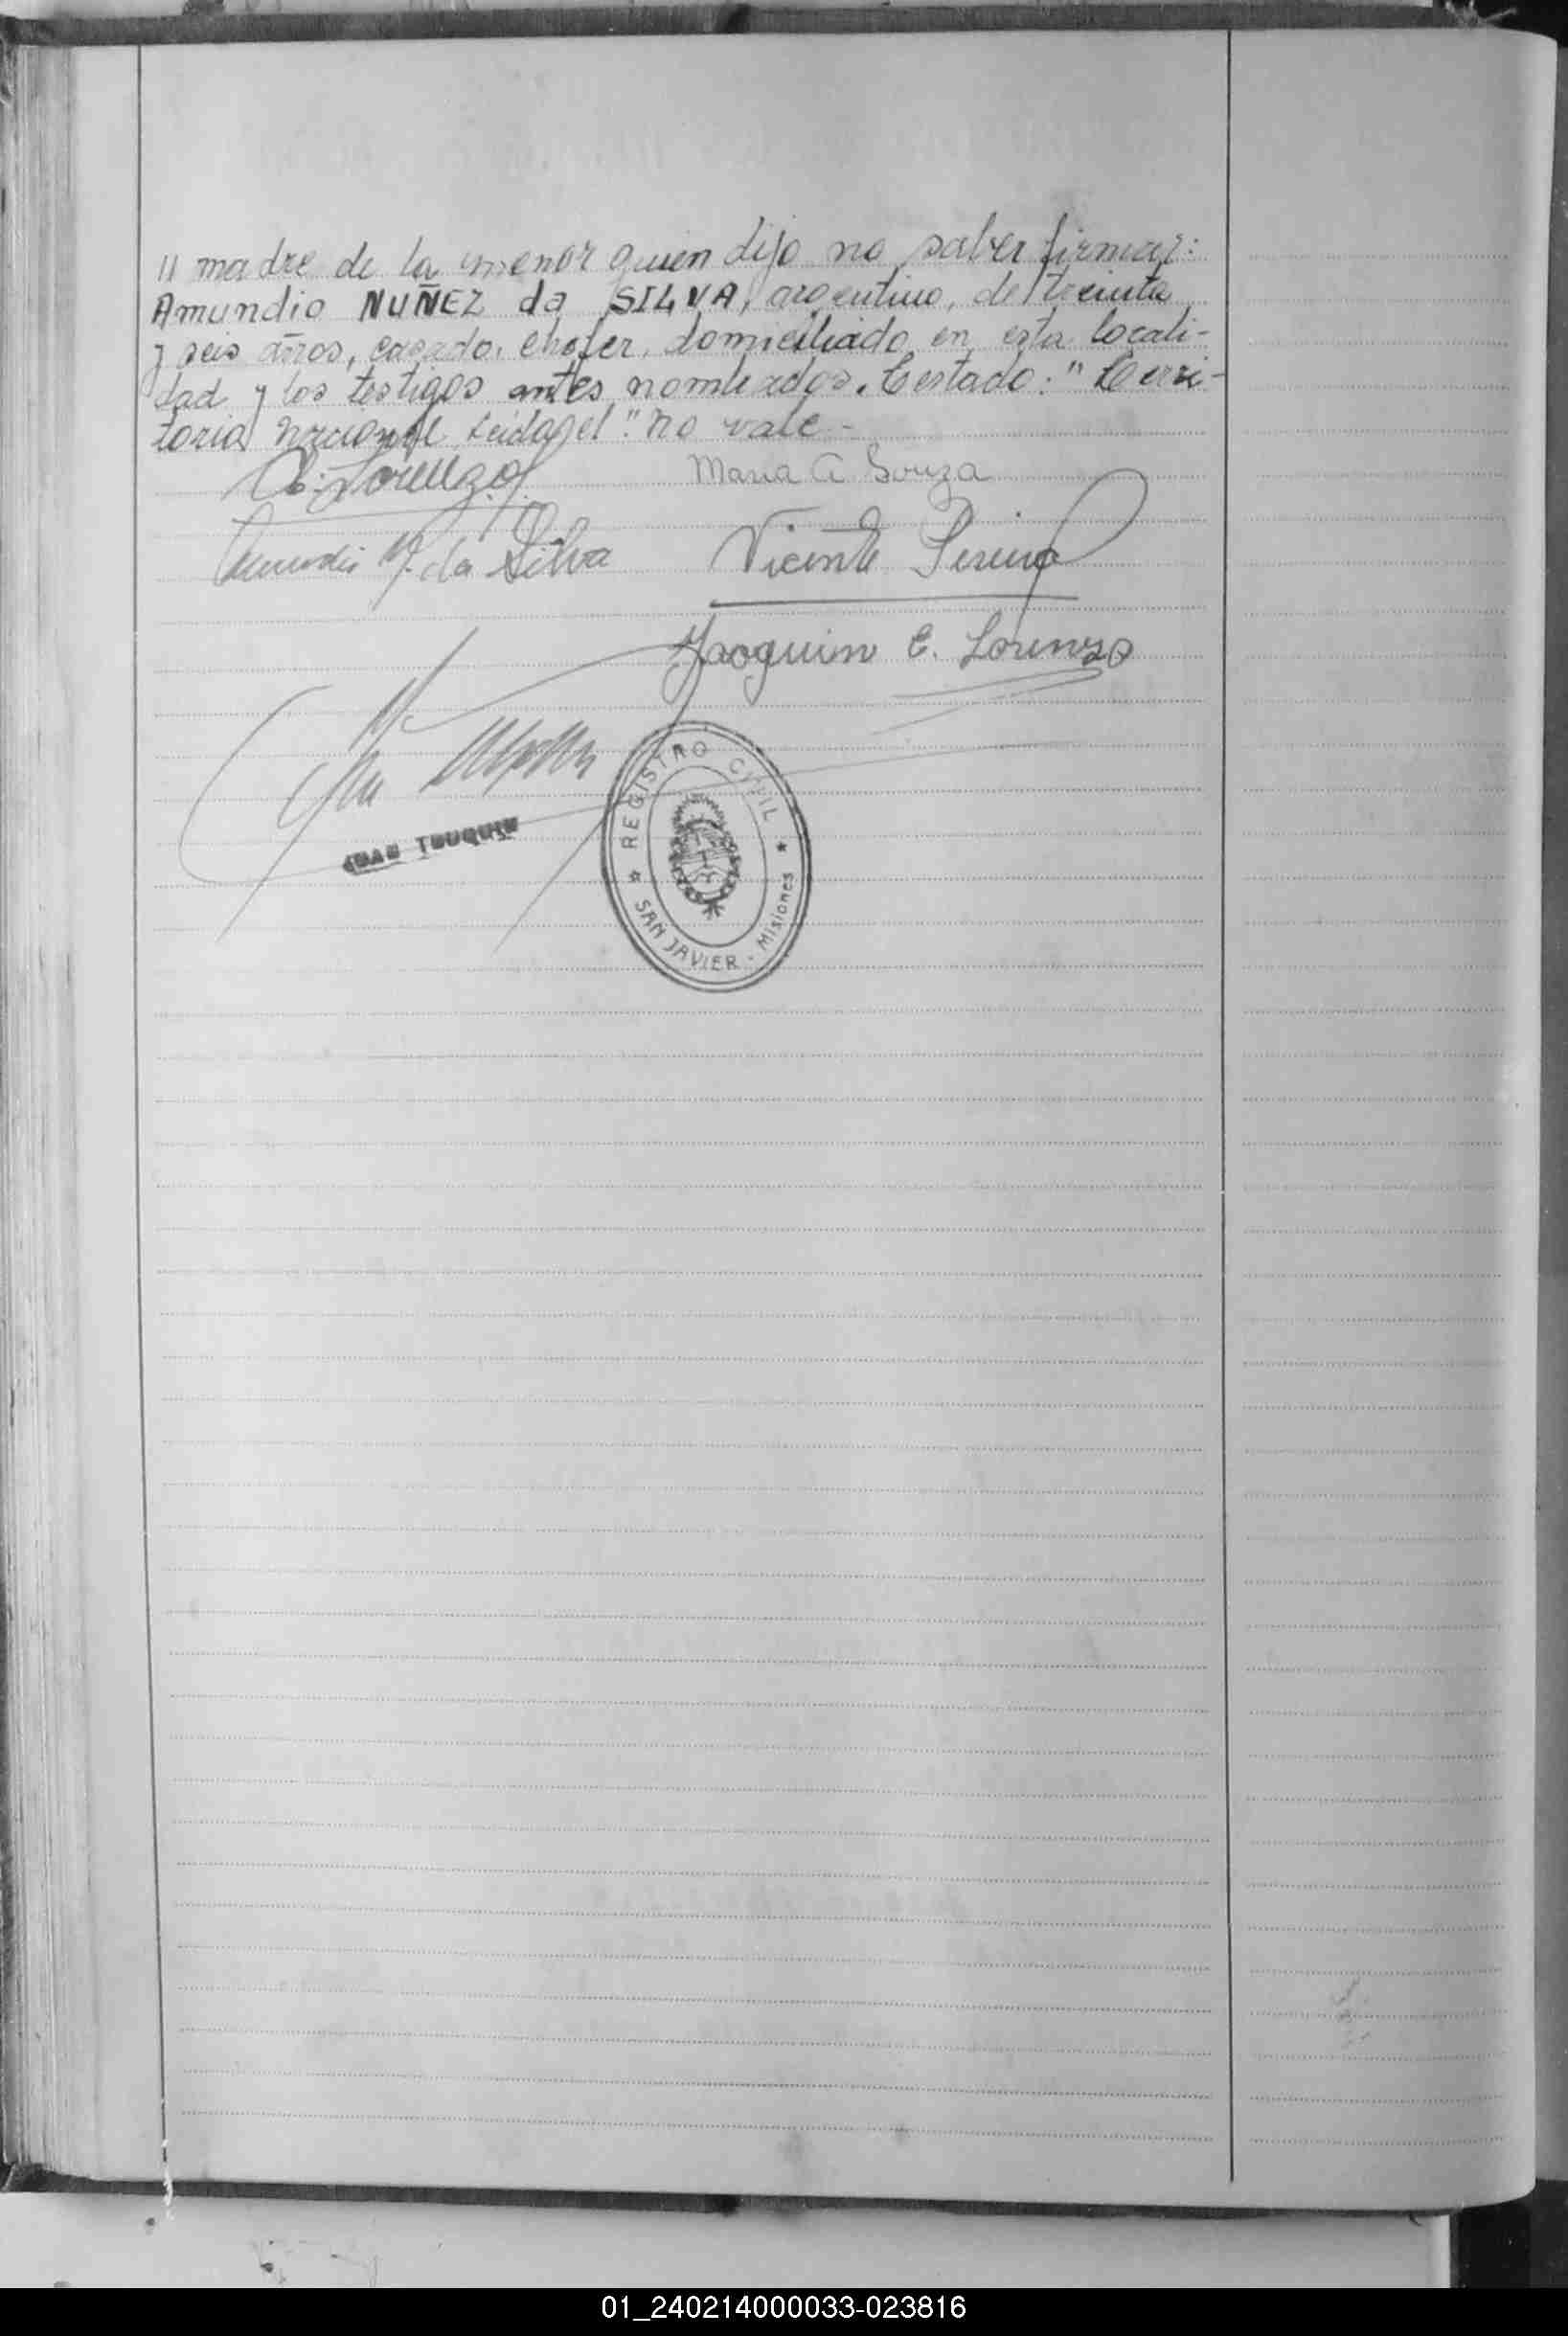 " madre de la menor quien dijo no saber firmar:
Amundio NUÑEZ da SILVA, argentino, de treinta
y seis años, casado, chofer, domiciliado en esta locali-
dad y los testigos antes nombrados. Testado: "Terri-
torio nacional No vale.-
Lorenzo
Maria A Souza
da Silva
Vicente Pereira
Joaquin C. Lorenzo
REGISTRO CIVIL
SAN JAVIER - Misiones
01_240214000033-023816